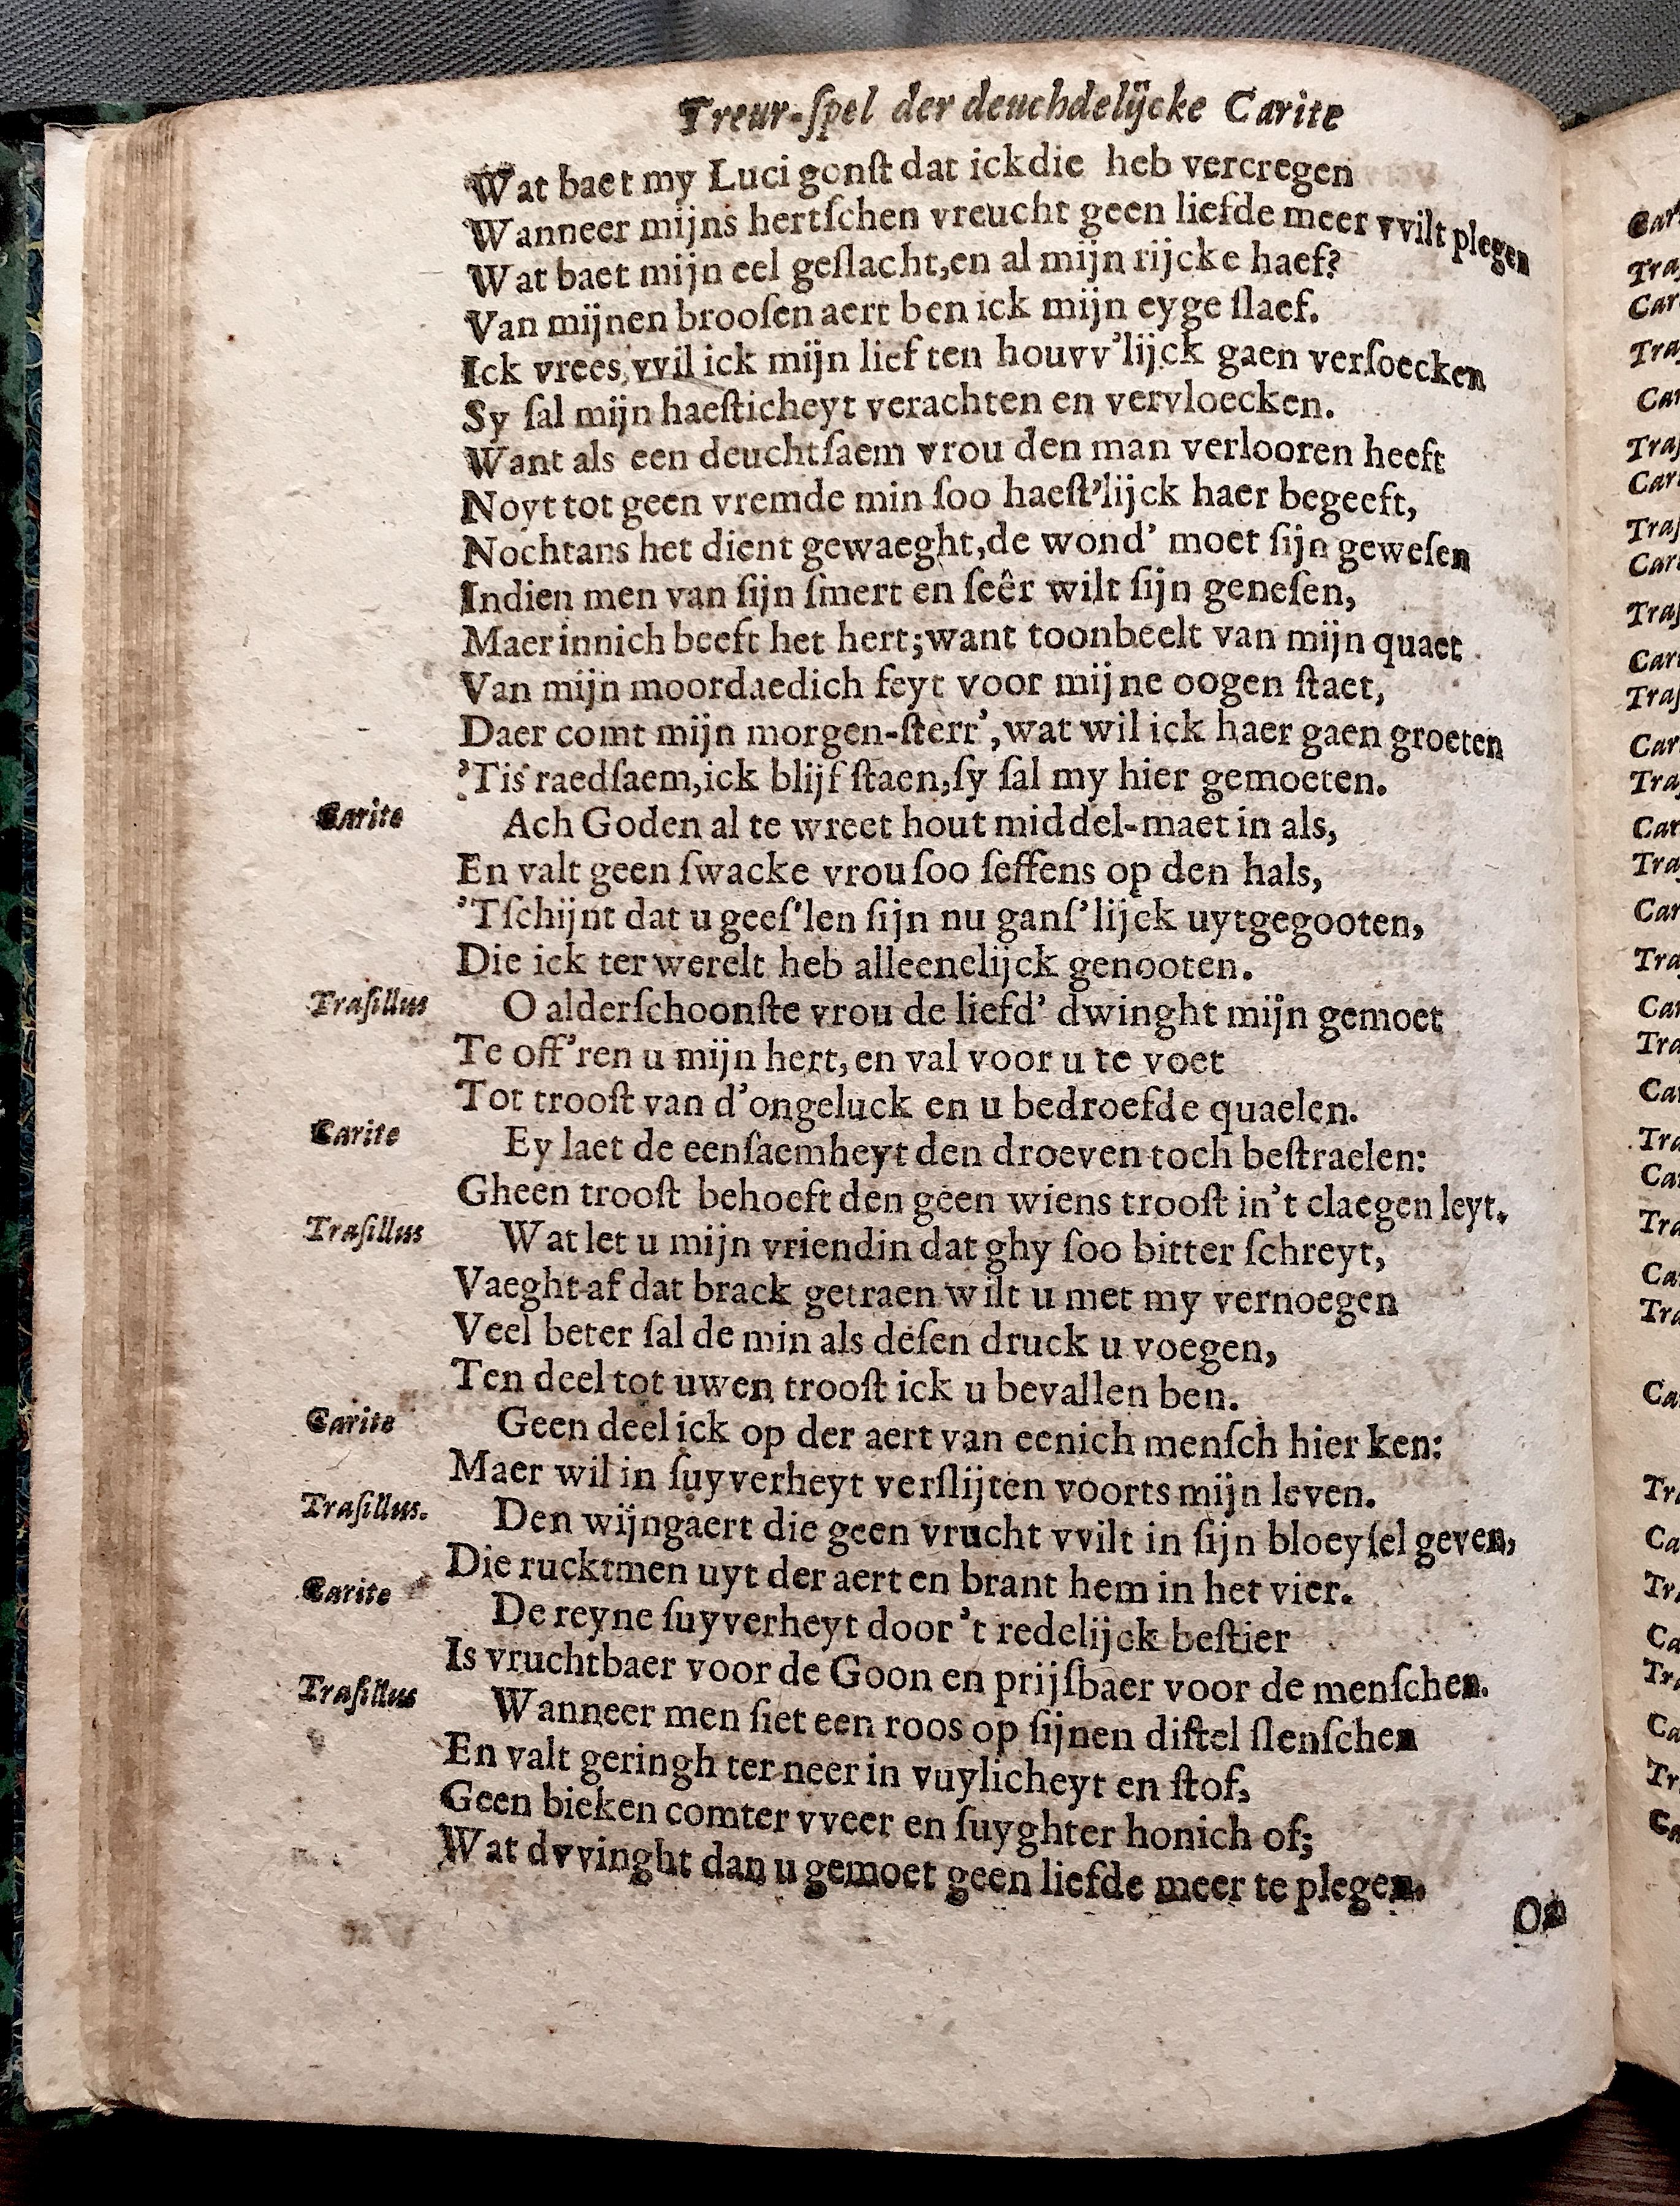 Treur-ſpel der deuchdelijcke Carite
Wat baet my Luci gonſt dat ick die heb vercregen
Wanneer mijns hertſchen vreucht geen liefde meer vvilt plegen
Wat baet mijn eel geſlacht,en al mijn rijcke haef?
Van mijnen brooſen aert ben ick mijn eyge ſlaef.
Ick vrees,vvil ick mijn lief ten houvv'lijck gaen verſoecken
Sy ſal mijn haeſticheyt verachten en vervloecken.
Want als een deuchtſaem vrou den man verlooren heeft
Noyt tot geen vremde min ſoo haeſt'lijck haer begeeft,
Nochtans het dient gewaeght,de wond' moet ſijn geweſen
Indien men van ſijn ſmert en ſeêr wilt ſijn geneſen,
Maer innich beeft het hert;want toonbeelt van mijn quaet
Van mijn moordaedich feyt voor mijne oogen ſtaet,
Daer comt mijn morgen-ſterr',wat wil ick haer gaen groeten
'Tis raedſaem,ick blijf ſtaen,ſy ſal my hier gemoeten.
Carite Ach Goden al te wreet hout middel-maet in als,
En valt geen ſwacke vrou ſoo ſeffens op den hals,
'Tſchijnt dat u geeſ'len ſijn nu ganſ'lijck uytgegooten,
Die ick ter werelt heb alleenelijck genooten.
Traſillus O alderſchoonſte vrou de liefd' dwinght mijn gemoet
Te off'ren u mijn hert,en val voor u te voet
Tot trooſt van d'ongeluck en u bedroefde quaelen.
Carite Ey laet de eenſaemheyt den droeven toch beſtraelen:
Gheen trooſt behoeft den geen wiens trooſt in't claegen leyt.
Traſillus Wat let u mijn vriendin dat ghy ſoo bitter ſchreyt,
Vaeght af dat brack getraen wilt u met my vernoegen
Veel beter ſal de min als deſen druck u voegen,
Ten deel tot uwen trooſt ick u bevallen ben.
Carite Geen deel ick op der aert van eenich menſch hier ken:
Maer wil in ſuyverheyt verſlijten voorts mijn leven.
Traſillus. Den wijngaert die geen vrucht vvilt in ſijn bloeyſel geven,
Die rucktmen uyt der aert en brant hem in het vier.
Carite De reyne ſuyverheyt door't redelijck beſtier
Is vruchtbaer voor de Goon en prijſbaer voor de menſchen.
Traſillus Wanneer men ſiet een roos op ſijnen diſtel ſlenſchen
En valt geringh ter neer in vuylicheyt en ſtof,
Geen bieken comter vveer en ſuyghter honich of;
Wat dvvinght dan u gemoet geen liefde meer te plegen.